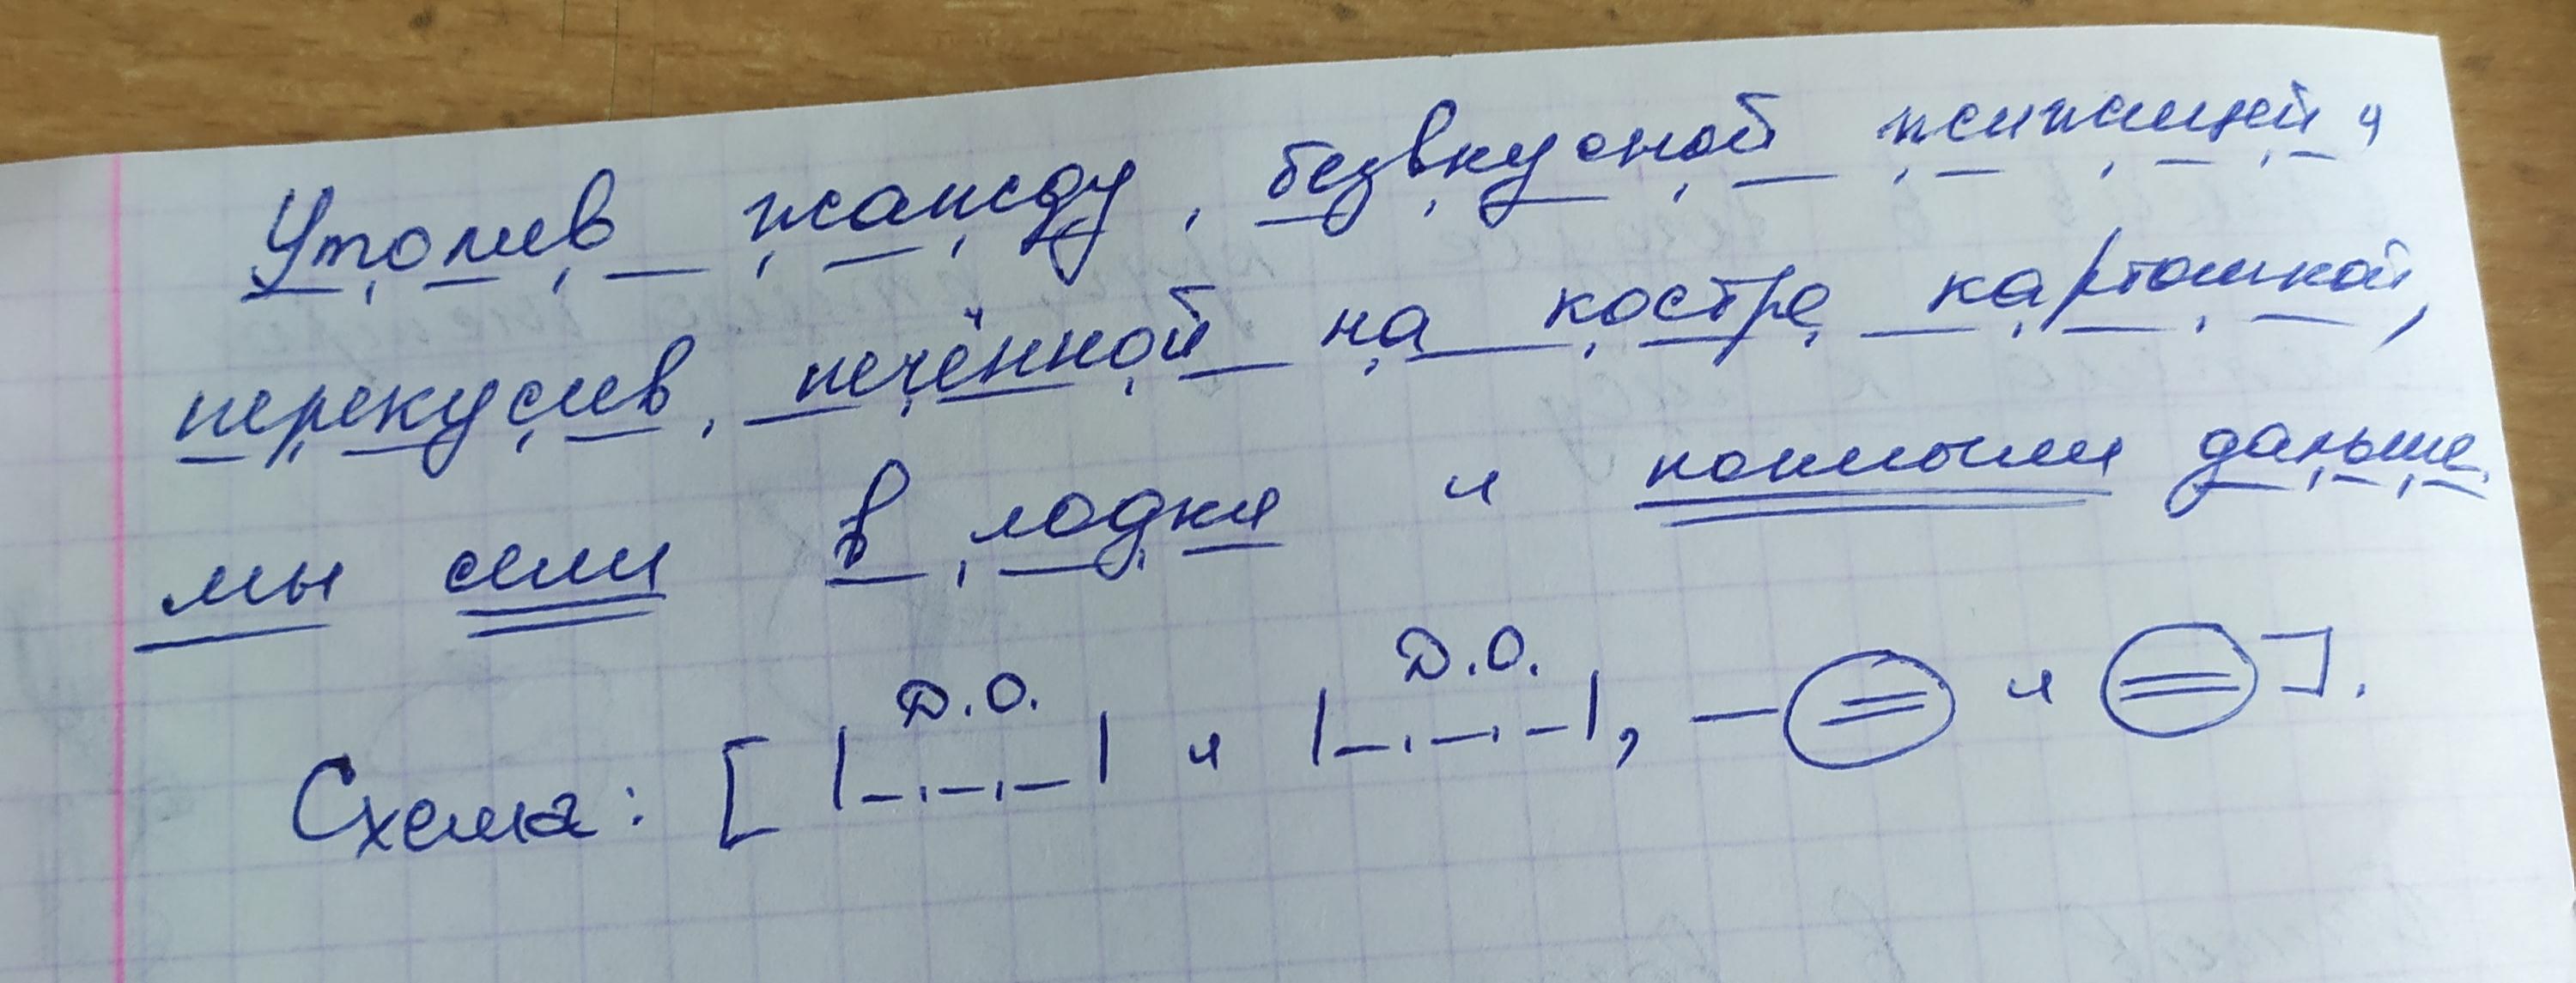 Утолив жажду безвкусной жижицей и
перекусив печённой на костре картошкой,
мы сели в лодки и поплыли дальше.
Д.О. Д.О.
Схема: [ |_._._| и |_._._|, — (=) и (=) ].